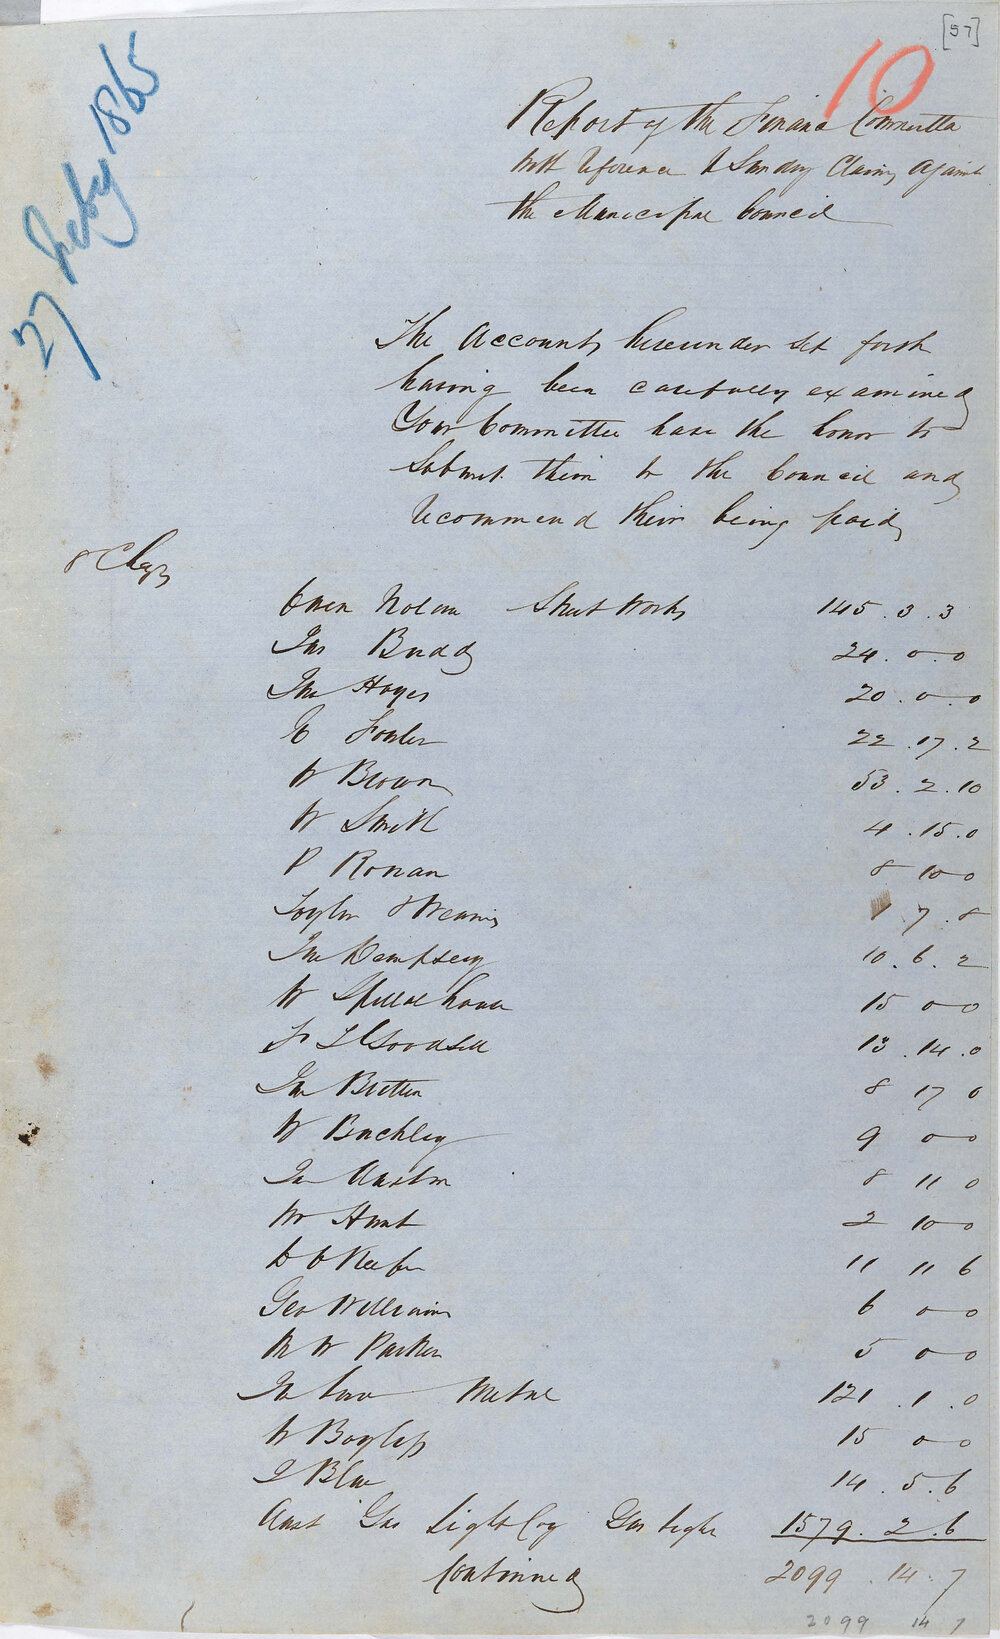 [57]
10
27 Feby 1865
Report of the Finance Committee
with reference to Sundry Claims against
the Municipal Council
The Accounts hereunder set forth
having been carefully examined
Your Committee have the honor to
Submit them to the Council and
recommend their being paid,
8 Chqs
Owen Nolan Street Works 145.3.3
Jas Budd 24.0.0
Jno Hayes 20.0.0
E Fowler 22.17.2
W Brown 53.2.10
W Smith 4.15.0
P Ronan 8 10 0
Taylor & Wearin 1 7.8
Jno Dempsey 10.6.2
W Spillane 15 0 0
F L Goodsell 13.14.0
Jno Britten 8 17 0
W Buckley 9 0 0
Jn Austin 8 11 0
W Hunt 2 10 0
D O Keefe 11 11 6
Geo Williams 6 0 0
R W Parker 5 0 0
Jno Metal 121.1.0
W Bayliss 15 0 0
J Blue 14.5.6
Aust Gas Light Coy Gas Light 1579.2.6
Continued 2099.14.7
2099 14 7